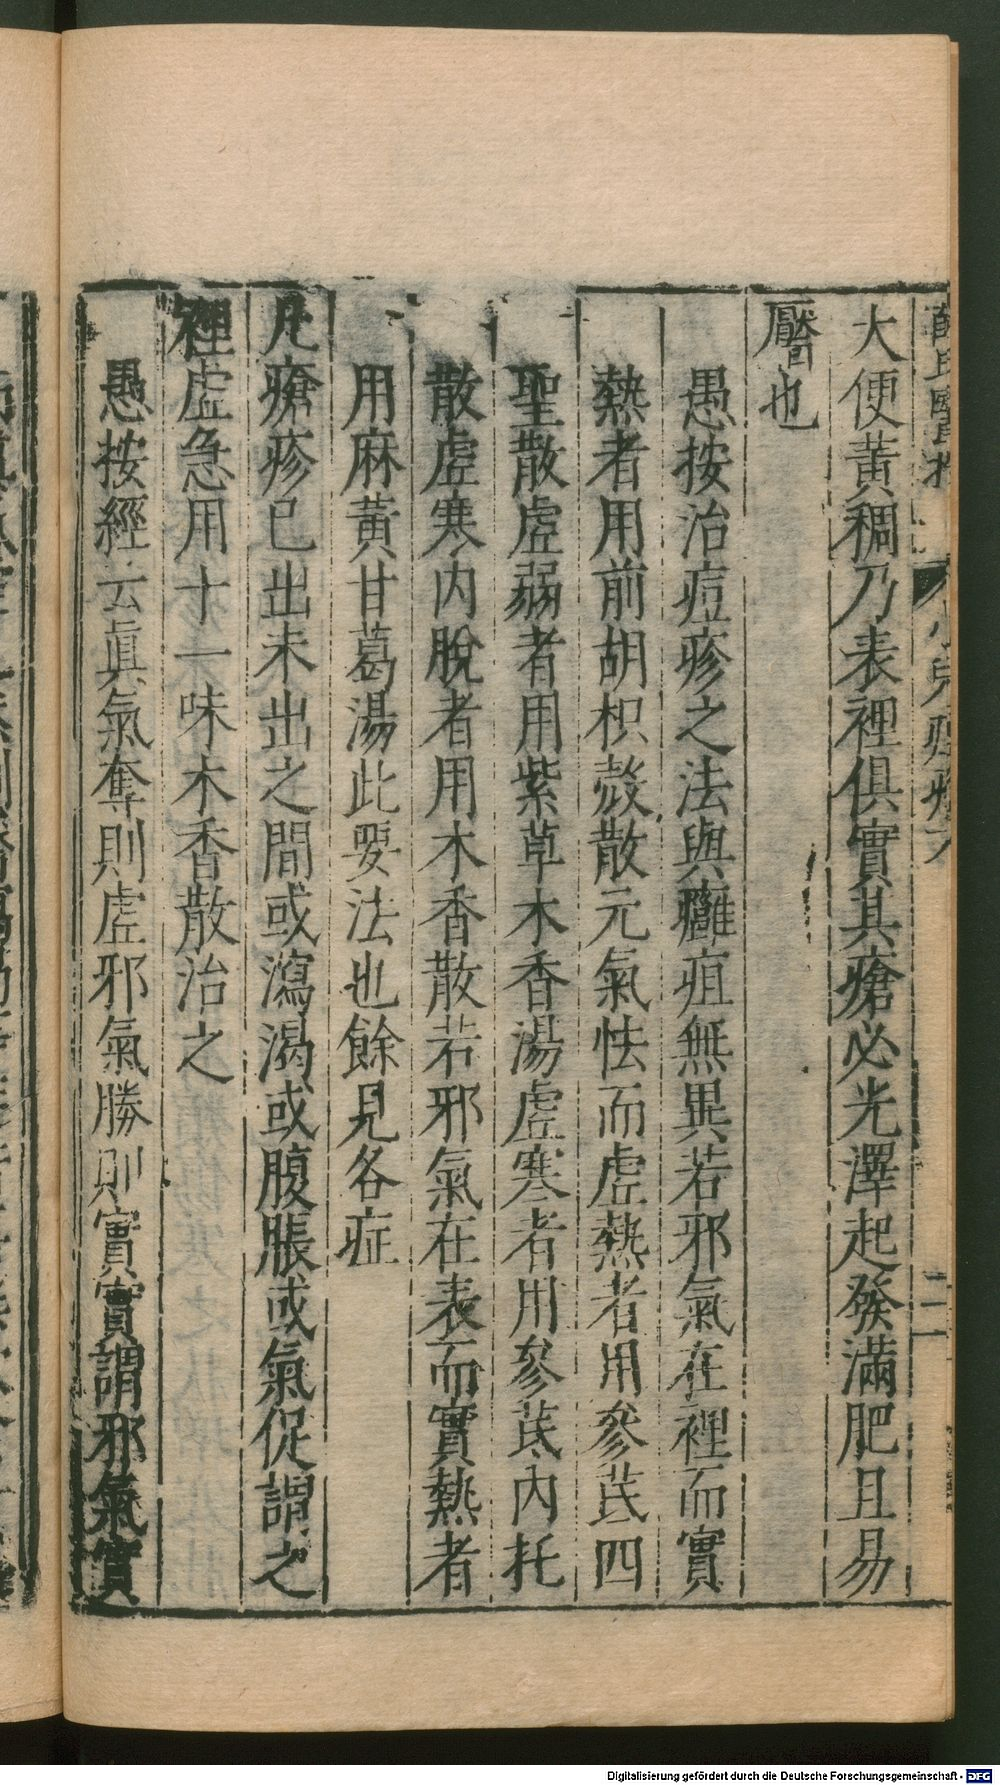 大便黃稠乃表裡俱實其瘡必光澤起發滿肥且易
靨也
愚按治痘疹之法與癰疽無異若邪氣在裡而實
熱者用前胡枳殼散元氣怯而虛熱者用參芪四
聖散虛弱者用紫草木香湯虛寒者用參芪內托
散虛寒內脫者用木香散若邪氣在表而實熱者
用麻黃甘葛湯此要法也餘見各症
凡瘡疹已出未出之間或瀉渴或腹脹或氣促謂之
裡虛急用十一味木香散治之
愚按經云眞氣奪則虛邪氣勝則實實謂邪氣實
Digitalisierung gefördert durch die Deutsche Forschungsgemeinschaft - DFG